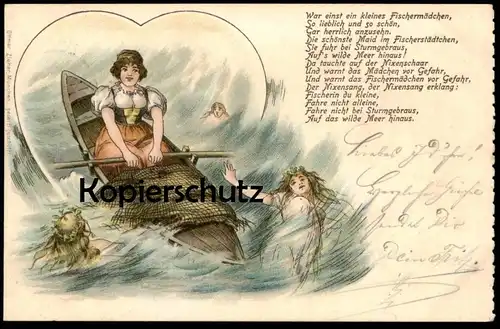 War einst ein kleines Fischermädchen,
So lieblich und so schön,
Gar herrlich anzusehn.
Die schönste Maid im Fischerstädtchen,
Sie fuhr bei Sturmgebraus,
Auf's wilde Meer hinaus!
Da tauchte auf der Nixenschaar
Und warnt das Mädchen vor Gefahr,
Und warnt das Fischermädchen vor Gefahr,
Der Nixensang, der Nixensang erklang:
Fischerin du kleine,
Fahre nicht alleine,
Fahre nicht bei Sturmgebraus,
Auf das wilde Meer hinaus.
Kopierschutz
sendet Dir
Dein